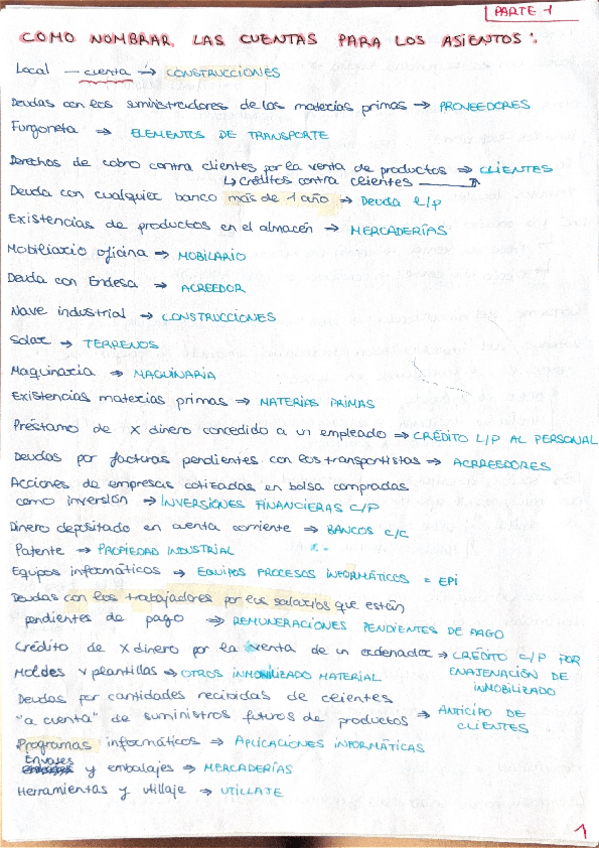 PARTE 1
COMO NOMBRAR LAS CUENTAS PARA LOS ASIENTOS:
Local — cuenta → CONSTRUCCIONES
Deudas con los suministradores de las materias primas → PROVEEDORES
Furgoneta → ELEMENTOS DE TRANSPORTE
Derechos de cobro contra clientes por la venta de productos → CLIENTES
↳ créditos contra clientes
Deuda con cualquier banco más de 1 año → Deuda l/p
Existencias de productos en el almacén → MERCADERÍAS
Mobiliario oficina → MOBILARIO
Deuda con Endesa → ACREEDOR
Nave industrial → CONSTRUCCIONES
Solar → TERRENOS
Maquinaria → MAQUINARIA
Existencias materias primas → MATERIAS PRIMAS
Préstamo de X dinero concedido a un empleado → CRÉDITO L/P AL PERSONAL
Deudas por facturas pendientes con los transportistas → ACRREEDORES
Acciones de empresas cotizadas en bolsa compradas
como inversión → INVERSIONES FINANCIERAS C/P
Dinero depositado en cuenta corriente → BANCOS C/C
Patente → PROPIEDAD INDUSTRIAL
Equipos informáticos → EQUIPOS PROCESOS INFORMÁTICOS = EPI
Deudas con los trabajadores por los salarios que están
pendientes de pago → REMUNERACIONES PENDIENTES DE PAGO
Crédito de X dinero por la venta de un ordenador → CRÉDITO C/P POR
ENAJENACIÓN DE
INMOBILIZADO
Moldes y plantillas → OTROS INMOBILIZADO MATERIAL
Deudas por cantidades recibidas de clientes
"a cuenta" de suministros futuros de productos → ANTICIPO DE
CLIENTES
Programas informáticos → APLICACIONES INFORMÁTICAS
Envases y embalajes → MERCADERÍAS
Herramientas y utillaje → UTILLAJE
1